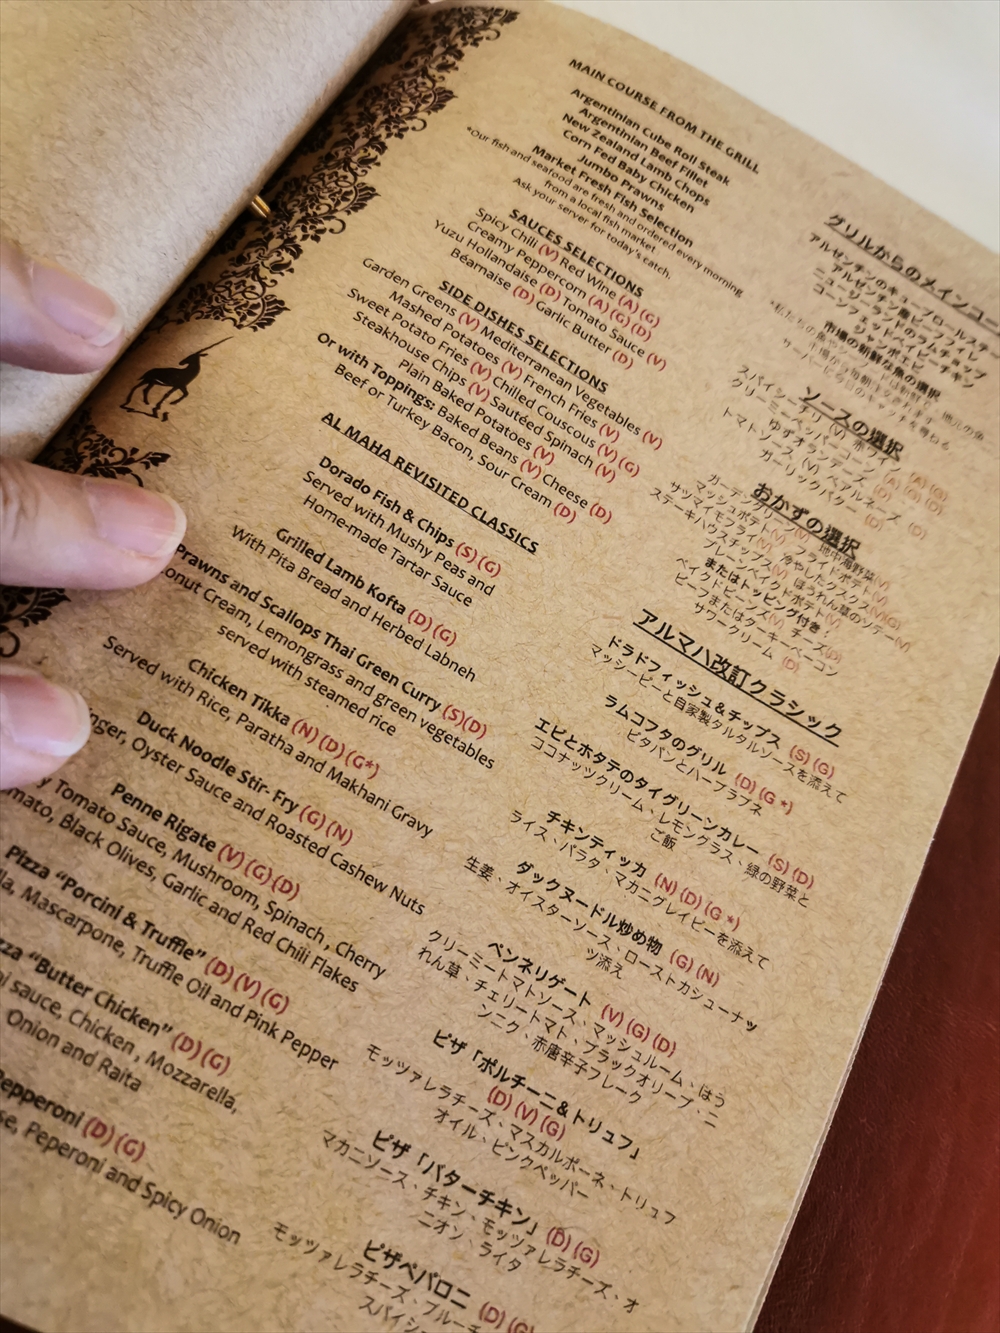 MAIN COURSE FROM THE GRILL
Argentinian Cube Roll Steak
Argentinian Beef Fillet
New Zealand Lamb Chops
Corn Fed Baby Chicken
Jumbo Prawns
Market Fresh Fish Selection
*Our fish and seafood are fresh and ordered every morning
from a local fish market.
Ask your server for today's catch.
SAUCES SELECTIONS
Spicy Chili (V) Red Wine (A) (G)
Creamy Peppercorn (A) (G) (D)
Yuzu Hollandaise (D) Tomato Sauce (V)
Béarnaise (D) Garlic Butter (D)
SIDE DISHES SELECTIONS
Garden Greens (V) Mediterranean Vegetables (V)
Mashed Potatoes (V) French Fries (V)
Sweet Potato Fries (V) Chilled Couscous (V) (G)
Steakhouse Chips (V) Sautéed Spinach (V)
Plain Baked Potatoes (V)
Or with Toppings: Baked Beans (V) Cheese (D)
Beef or Turkey Bacon, Sour Cream (D)
AL MAHA REVISITED CLASSICS
Dorado Fish & Chips (S) (G)
Served with Mushy Peas and
Home-made Tartar Sauce
Grilled Lamb Kofta (D) (G)
With Pita Bread and Herbed Labneh
Prawns and Scallops Thai Green Curry (S)(D)
Cream, Lemongrass and green vegetables
served with steamed rice
Chicken Tikka (N) (D) (G*)
Served with Rice, Paratha and Makhani Gravy
Duck Noodle Stir- Fry (G) (N)
Oyster Sauce and Roasted Cashew Nuts
Penne Rigate (V) (G) (D)
Tomato Sauce, Mushroom, Spinach, Cherry
Black Olives, Garlic and Red Chili Flakes
Pizza "Porcini & Truffle" (D) (V) (G)
Mascarpone, Truffle Oil and Pink Pepper
"Butter Chicken" (D) (G)
sauce, Chicken, Mozzarella,
Onion and Raita
Pepperoni (D) (G)
Peperoni and Spicy Onion
グリルからのメインコー
アルゼンチンのキューブロールステー
アルゼンチン産ビーフフィレ
ニュージーランドのラムチョップ
コーンフェッドベイビーチキン
ジャンボエビ
市場の新鮮な魚の選択
ソースの選択
スパイシーチリ (V) 赤ワイン (A) (G)
クリーミーペッパーコーン (A) (G) (D)
ゆずオランデーズ (D)
トマトソース (V) ベアルネーズ (D)
ガーリックバター (D)
おかずの選択
ガーデングリーン(V) 地中海野菜(V)
マッシュポテト(V) フライドポテト(V)
サツマイモフライ(V) 冷やしたクスクス(V)(G)
ステーキハウスチップス(V) ほうれん草のソテー(V)
プレーンベイクドポテト(V)
またはトッピング付き：
ベイクドビーンズ(V) チーズ(D)
ビーフまたはターキーベーコン
サワークリーム (D)
アルマハ改訂クラシック
ドラドフィッシュ＆チップス (S) (G)
マッシーピーと自家製タルタルソースを添えて
ラムコフタのグリル (D) (G *)
ピタパンとハーブラブネ
エビとホタテのタイグリーンカレー (S) (D)
ココナッツクリーム、レモングラス、緑の野菜と
ご飯
チキンティッカ (N) (D) (G *)
ライス、パラタ、マカーグレイビーを添えて
ダックヌードル炒め物 (G) (N)
生姜、オイスターソース、ローストカシューナッ
ツ添え
ペンネリゲート (V) (G) (D)
クリーミートマトソース、マッシュルーム、ほう
れん草、チェリートマト、ブラックオリーブ、ニ
ンニク、赤唐辛子フレーク
ピザ「ポルチーニ＆トリュフ」
(D) (V) (G)
モッツァレラチーズ、マスカルポーネ、トリュフ
オイル、ピンクペッパー
ピザ「バターチキン」 (D) (G)
マカニソース、チキン、モッツァレラチーズ、オ
ニオン、ライタ
ピザペパロニ (D) (G)
モッツァレラチーズ、